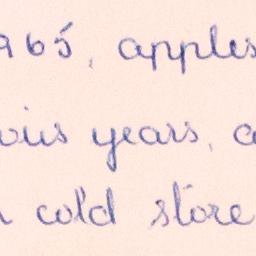 965, apples
ous years, a
cold store